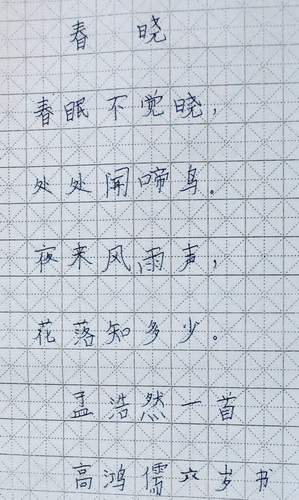 春晓
春眠不觉晓，
处处闻啼鸟。
夜来风雨声，
花落知多少。
孟浩然一首
高鸿儒六岁书